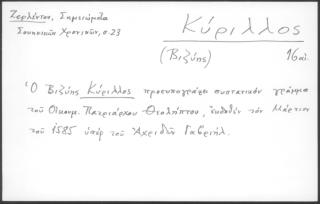 Ζερλέντου, Σημειώματα
Σουηδικῶν Χρονικῶν, σ. 23
Κύριλλος
(Βιζύης)
16 αἰ.
Ὁ Βιζύης Κύριλλος προσυπογράφει συστατικόν γράμμα
τοῦ Οἰκουμ. Πατριάρχου Θεολήπτου, ἐκδοθέν τόν Μάρτιον
τοῦ 1585 ὑπέρ τοῦ Ἀχριδῶν Γαβριήλ.